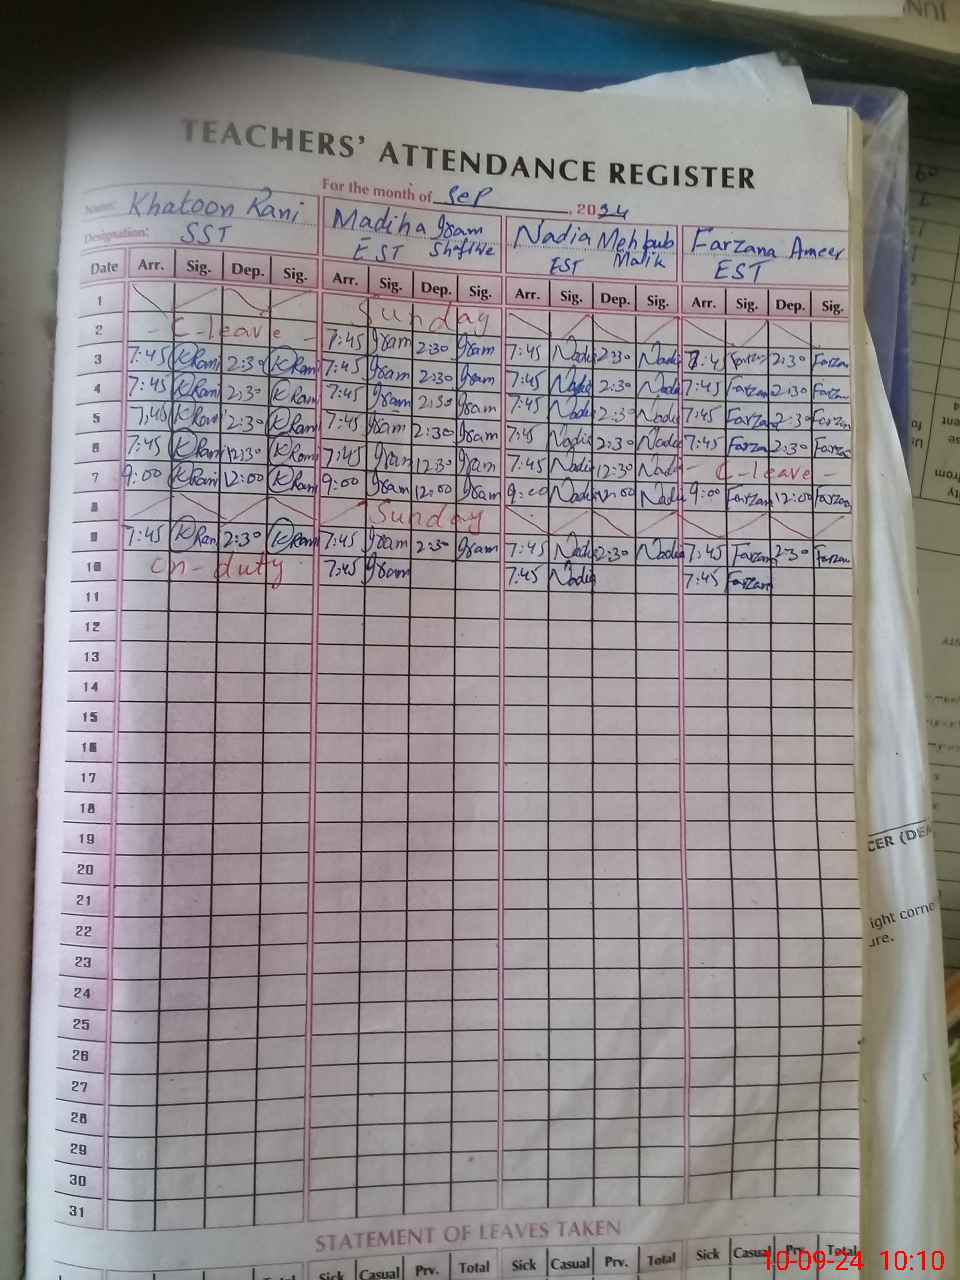 TEACHERS' ATTENDANCE REGISTER
For the month of Sep, 2024
Name: Khatoon Rani Madiha Iram Shafique Nadia Mehbub Malik Farzana Ameer
Designation: SST EST EST EST
Date Arr. Sig. Dep. Sig. Arr. Sig. Dep. Sig. Arr. Sig. Dep. Sig. Arr. Sig. Dep. Sig.
1 Sunday
2 - C-leave - 7:45 Iram 2:30 Iram 7:45 Nadia 2:30 Nadia 7:45 Farzan 2:30 Farzan
3 7:45 KRani 2:30 KRani 7:45 Iram 2:30 Iram 7:45 Nadia 2:30 Nadia 7:45 Farzan 2:30 Farzan
4 7:45 KRani 2:30 KRani 7:45 Iram 2:30 Iram 7:45 Nadia 2:30 Nadia 7:45 Farzan 2:30 Farzan
5 7:45 KRani 2:30 KRani 7:45 Iram 2:30 Iram 7:45 Nadia 2:30 Nadia 7:45 Farzan 2:30 Farzan
6 7:45 KRani 12:30 KRani 7:45 Iram 12:30 Iram 7:45 Nadia 12:30 Nadia - C-leave -
7 9:00 KRani 12:00 KRani 9:00 Iram 12:00 Iram 9:00 Nadia 12:00 Nadia 9:00 Farzan 12:00 Farzan
8 Sunday
9 7:45 KRan 2:30 KRani 7:45 Iram 2:30 Iram 7:45 Nadia 2:30 Nadia 7:45 Farzan 2:30 Farzan
10 on-duty 7:45 Iram 7:45 Nadia 7:45 Farzan
11
12
13
14
15
16
17
18
19
20
21
22
23
24
25
26
27
28
29
30
31
STATEMENT OF LEAVES TAKEN
Total Sick Casual Prv. Total Sick Casual Prv. Total Sick Casual Prv. Total
10-09-24 10:10
CER (DEA
ight corne
ure.